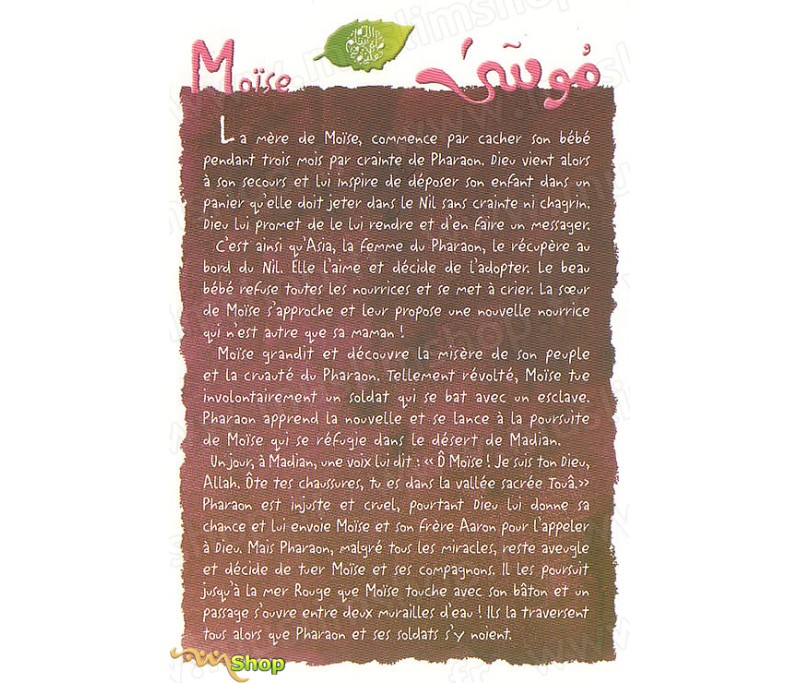 Moïse
مُوسَى
La mère de Moïse, commence par cacher son bébé
pendant trois mois par crainte de Pharaon. Dieu vient alors
à son secours et lui inspire de déposer son enfant dans un
panier qu'elle doit jeter dans le Nil sans crainte ni chagrin.
Dieu lui promet de le lui rendre et d'en faire un messager.
C'est ainsi qu'Asia, la femme du Pharaon, le récupère au
bord du Nil. Elle l'aime et décide de l'adopter. Le beau
bébé refuse toutes les nourrices et se met à crier. La sœur
de Moïse s'approche et leur propose une nouvelle nourrice
qui n'est autre que sa maman !
Moïse grandit et découvre la misère de son peuple
et la cruauté du Pharaon. Tellement révolté, Moïse tue
involontairement un soldat qui se bat avec un esclave.
Pharaon apprend la nouvelle et se lance à la poursuite
de Moïse qui se réfugie dans le désert de Madian.
Un jour, à Madian, une voix lui dit : « Ô Moïse ! Je suis ton Dieu,
Allah. Ôte tes chaussures, tu es dans la vallée sacrée Touâ.»
Pharaon est injuste et cruel, pourtant Dieu lui donne sa
chance et lui envoie Moïse et son frère Aaron pour l'appeler
à Dieu. Mais Pharaon, malgré tous les miracles, reste aveugle
et décide de tuer Moïse et ses compagnons. Il les poursuit
jusqu'à la mer Rouge que Moïse touche avec son bâton et un
passage s'ouvre entre deux murailles d'eau ! Ils la traversent
tous alors que Pharaon et ses soldats s'y noient.
Shop